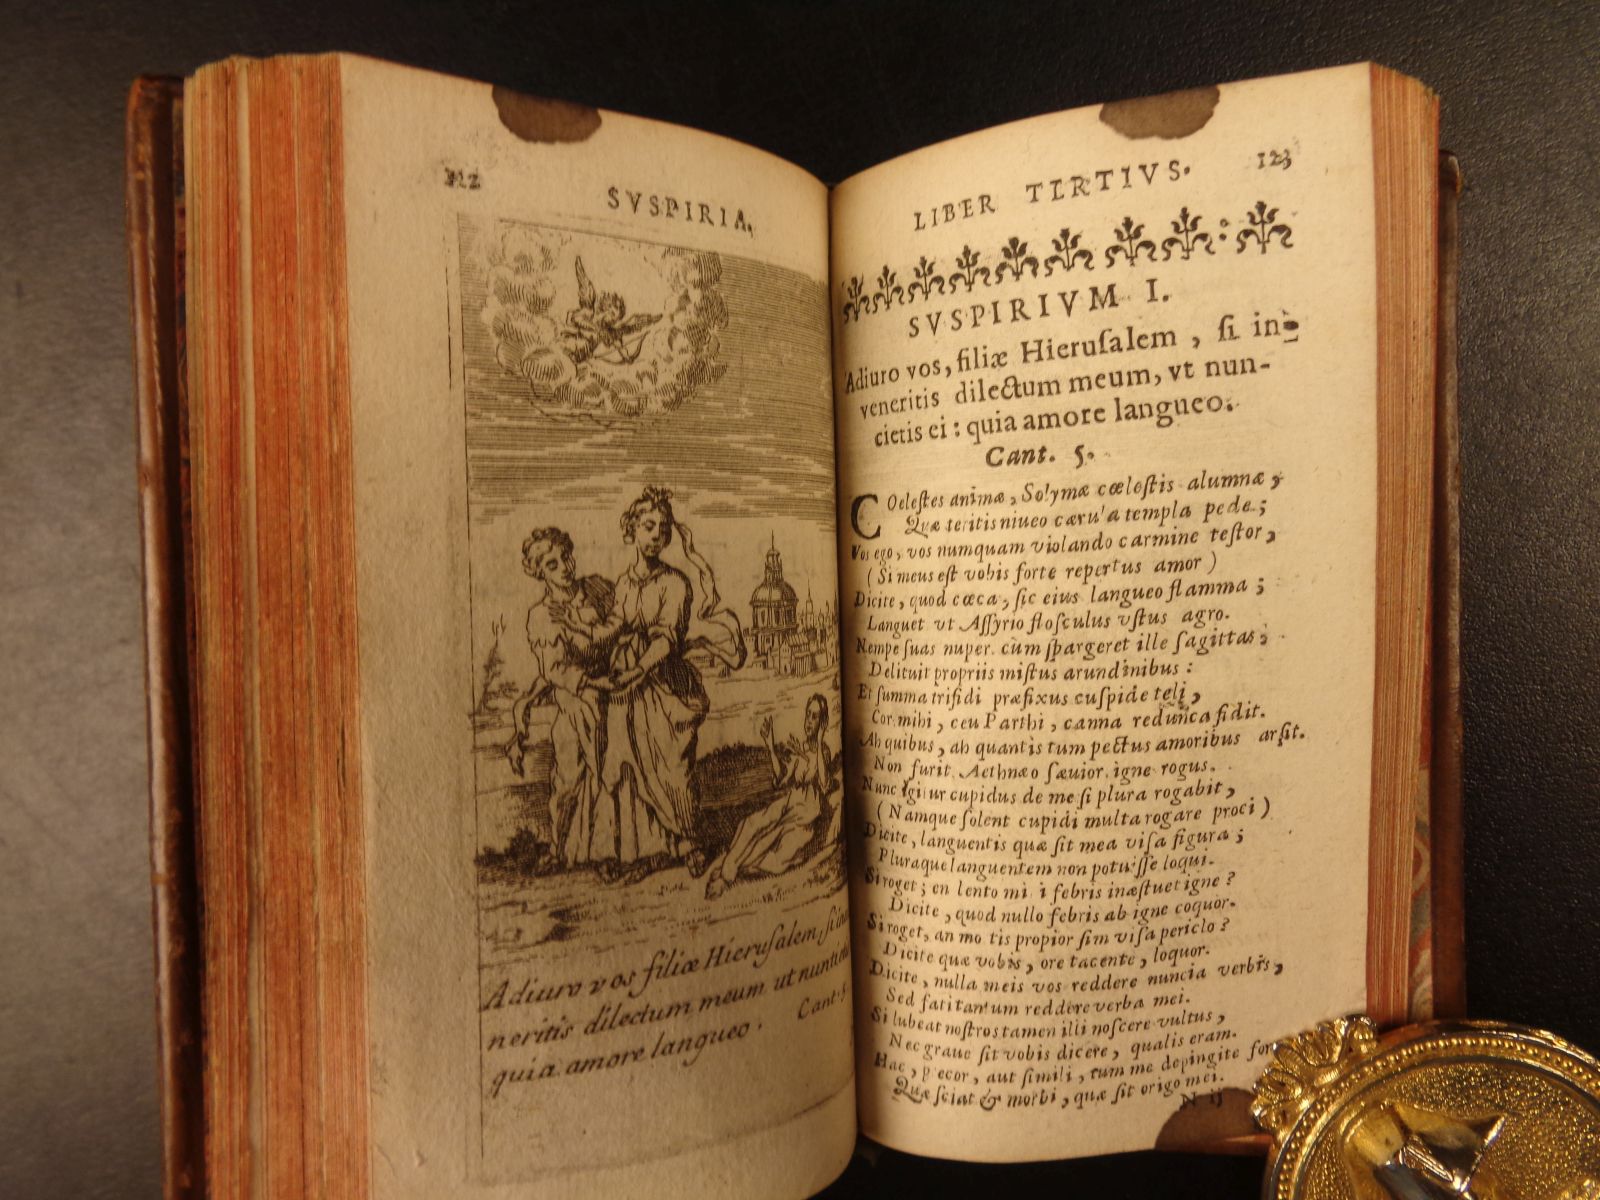 112
SVSPIRIA.
Adiuro vos filiæ Hierusalem, si
neritis dilectum meum ut nuntietis
quia amore langueo. Cant: 5.
LIBER TERTIVS. 123
SVSPIRIVM I.
Adiuro vos, filiæ Hieruſalem, ſi in-
veneritis dilectum meum, vt nun-
cietis ei : quia amore langueo.
Cant. 5.
COeleſtes animæ, Solymæ cœleſtis alumnæ,
Quæ teritis niueo cærula templa pede;
Vos ego, vos numquam violando carmine teſtor,
(Si meus eſt vobis forte repertus amor)
Dicite, quod cœca, ſic eius langueo flamma;
Languet vt Aſſyrio floſculus vſtus agro.
Nempe ſuas nuper, cùm ſpargeret ille ſagittas;
Delituit propriis miſtus arundinibus:
Et ſumma trifidi præfixus cuſpide teli,
Cor mihi, ceu Parthi, canna redunca fidit.
Ah quibus, ah quantis tum pectus amoribus arſit.
Non furit Aethnæo ſæuior igne rogus.
Nunc igitur cupidus de me ſi plura rogabit,
(Namque ſolent cupidi multa rogare proci)
Dicite, languentis quæ ſit mea viſa figura;
Pluraque languentem non potuiſſe loqui.
Si roget; en lento mi i febris inæſtuet igne?
Dicite, quod nullo febris ab igne coquor.
Si roget, an mo tis propior ſim viſa periclo?
Dicite quæ vobis, ore tacente, loquor.
Dicite, nulla meis vos reddere nuncia verbis,
Sed fatitantum reddere verba mei.
Si lubeat noſtros tamen illi noſcere vultus,
Nec graue ſit vobis dicere, qualis eram.
Hac, precor, aut ſimili, tum me depingite for
Quæ ſciat & morbi, quæ ſit origo mei.
N ij